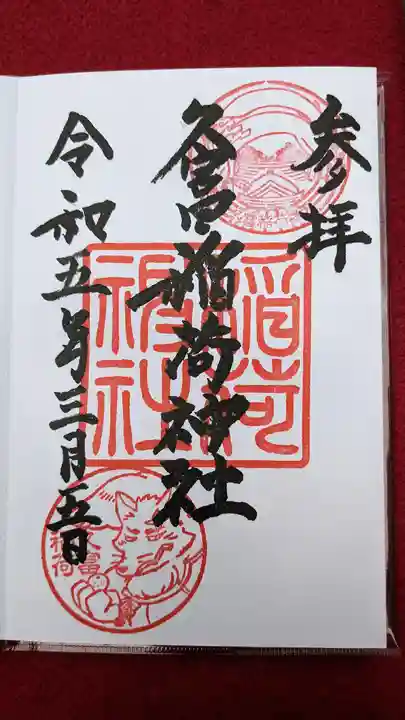 参拝
久富稲荷神社
令和五年三月五日
稲荷
神社
久富
稲荷